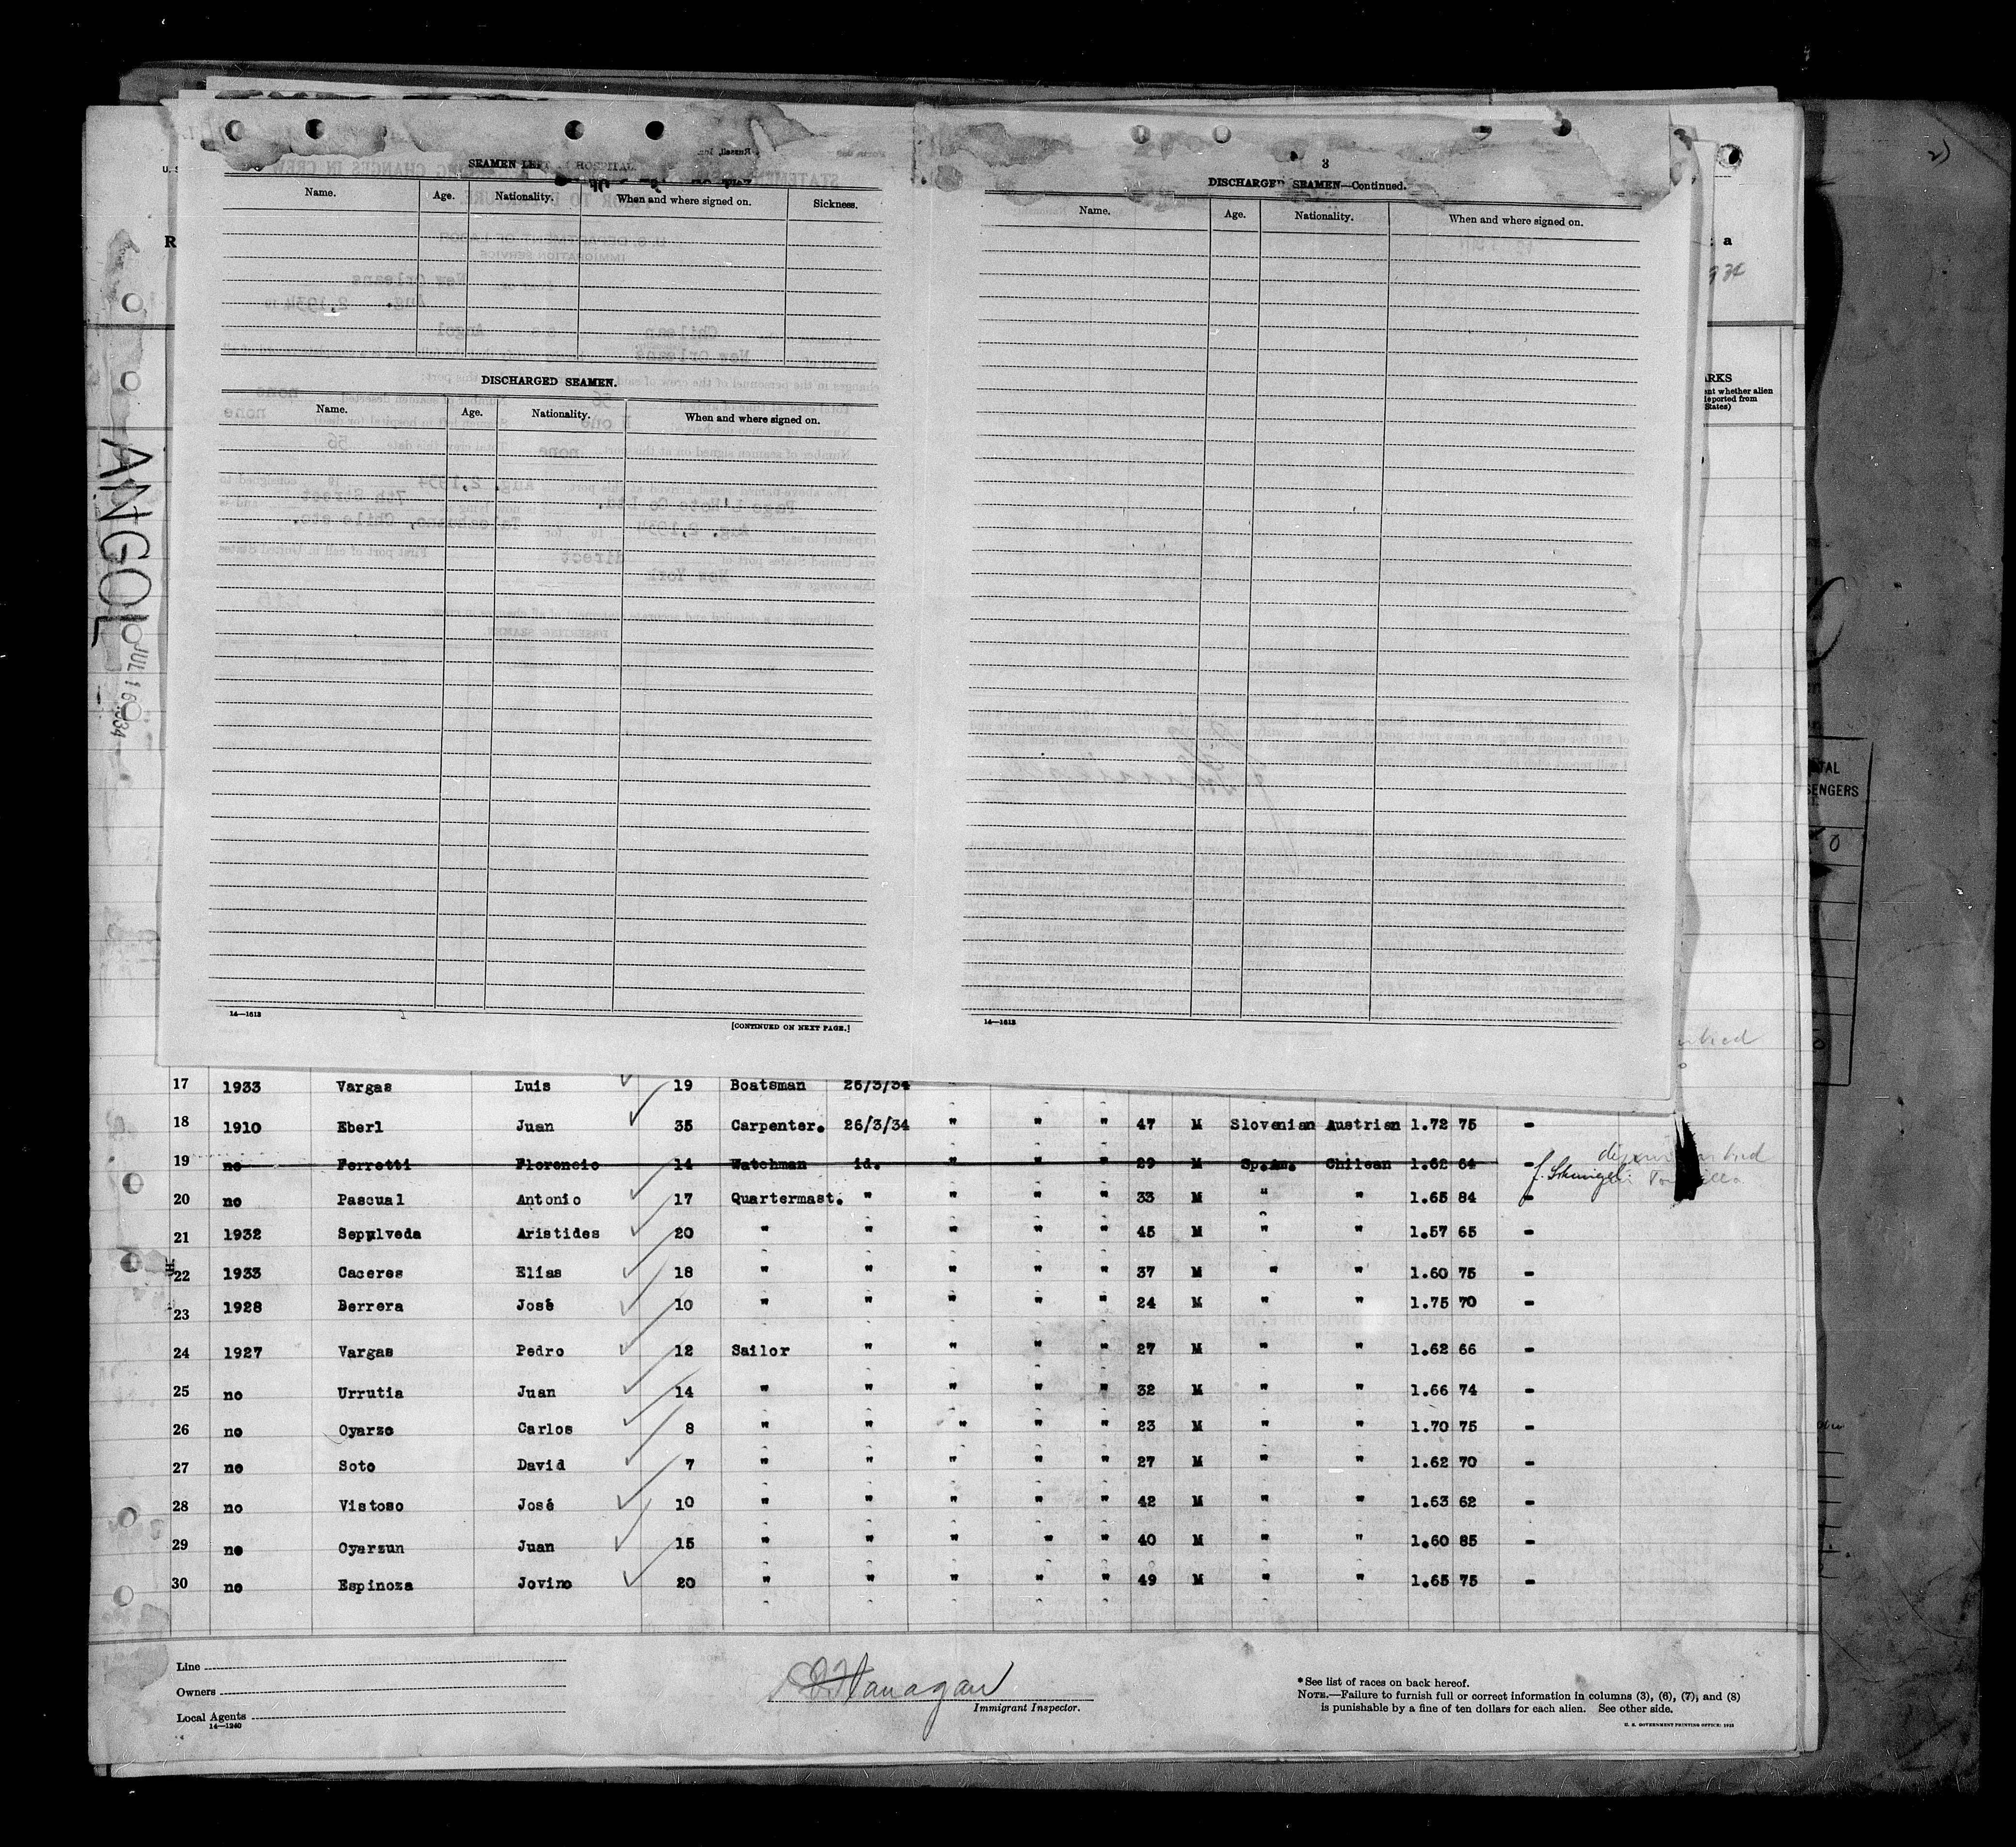 SEAMEN LEFT HOSPITAL
Name. Age. Nationality. When and where signed on. Sickness.
DISCHARGED SEAMEN.
Name. Age. Nationality. When and where signed on.
14—1613
[CONTINUED ON NEXT PAGE.]
3
DISCHARGED SEAMEN—Continued.
Name. Age. Nationality. When and where signed on.
14—1613
ANGOL
JUL 16 1934
R
a
RKS
ent whether alien
deported from
States)
TAL
SENGERS
0
17 1933 Vargas Luis 19 Boatsman 26/3/34 "
18 1910 Eberl Juan 35 Carpenter. 26/3/34 " " " 47 M Slovenian Austrian 1.72 75 -
19 no Ferretti Florencio 14 Watchman id. " " " 29 M Sp.Am. Chilean 1.62 64 -
20 no Pascual Antonio 17 Quartermast. " " " " 33 M " " 1.65 84 -
21 1932 Sepulveda Aristides 20 " " " " " 45 M " " 1.57 65 -
22 1933 Caceres Elías 18 " " " " " 37 M " " 1.60 75 -
23 1928 Berrera José 10 " " " " " 24 M " " 1.75 70 -
24 1927 Vargas Pedro 12 Sailor " " " " 27 M " " 1.62 66 -
25 no Urrutia Juan 14 " " " " " 32 M " " 1.66 74 -
26 no Oyarzo Carlos 8 " " " " " 23 M " " 1.70 75 -
27 no Soto David 7 " " " " " 27 M " " 1.62 70 -
28 no Vistoso José 10 " " " " " 42 M " " 1.63 62 -
29 no Oyarzun Juan 15 " " " " " 40 M " " 1.60 85 -
30 no Espinoza Jovino 20 " " " " " 49 M " " 1.65 75 -
Line
Owners
Local Agents
14—1240
Flanagan
Immigrant Inspector.
*See list of races on back hereof.
NOTE.—Failure to furnish full or correct information in columns (3), (6), (7), and (8)
is punishable by a fine of ten dollars for each alien. See other side.
U. S. GOVERNMENT PRINTING OFFICE: